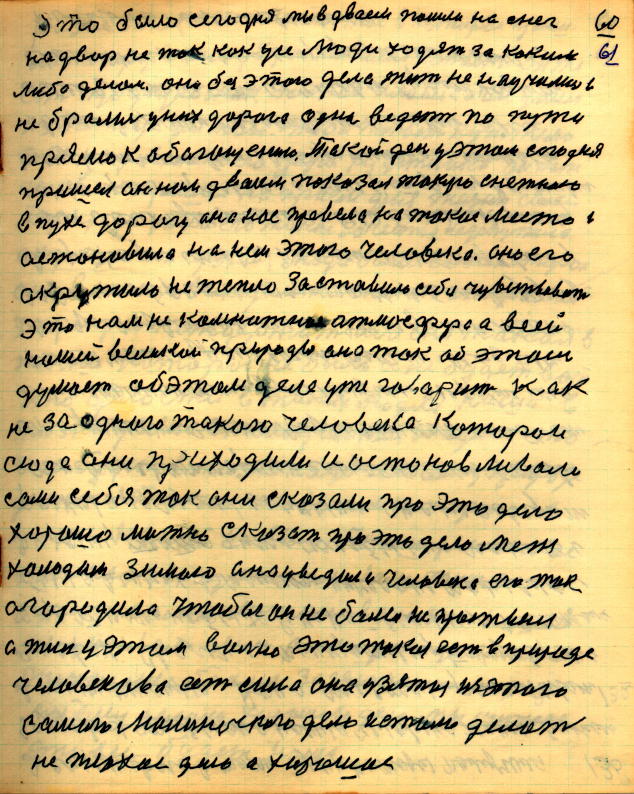 Это было сегодня ми в дваем пошли на снег 60
на двор не так как уси люди ходят за каким 61
либо делом. они без этого дела жит не научились
не брали у них дорога одна ведет по пути
прямо к обагощению. Такой ден у этом сегодня
пришел он нам дваем показал такую снежною
в пухе дорогу она нас превела на такое место и
астановила на нем этого человека. оно его
акружило не тепло Заставило себя чувствоват
Это нам не комнатная атмосфера а всей
нашей великой природы она так об этом
думает об этом деле уже говарит как
не за одного такого человека Которои
сюда они приходили и остоновливали
сами себя так они сказали про это дело
хорошо можно сказат про это дело меж
холодом зимою она уведила человека его так
огородила чтобы он не болел не простывал
а жил у этом волно это такая ест в природе
человекова ест сила она узята из этого
самого дело истово делат
не плохое дело а хорошее